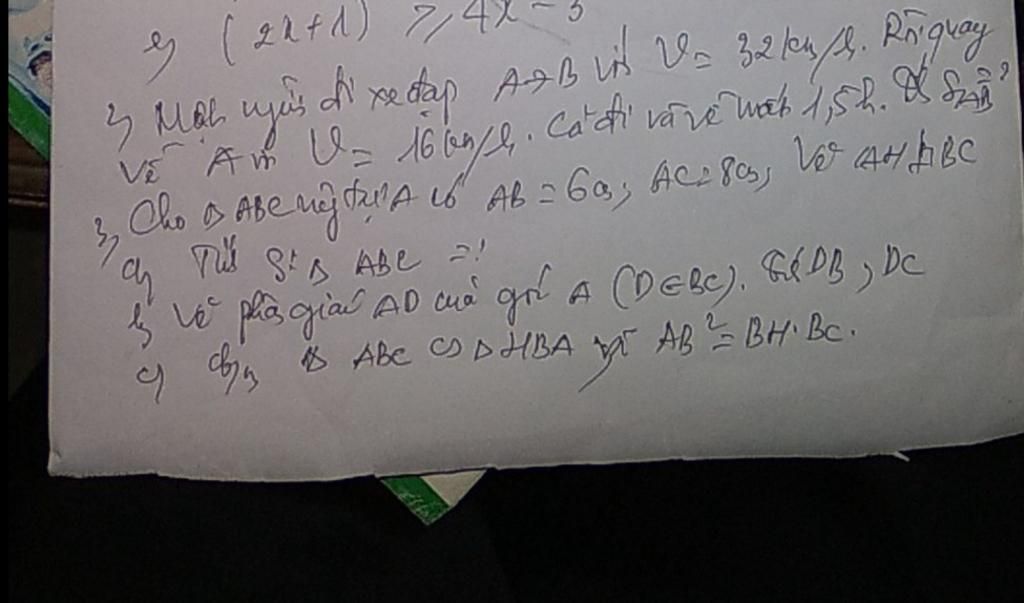 (2x+1) ≥ 4x - 3
2, Một người đi xe đạp A→B với V = 32 km/h. Rồi quay
về A với V = 16 km/h. Cả đi và về mất 1,5h. S_AB?
3, Cho Δ ABC vuông tại A có AB = 6cm, AC = 8cm, Vẽ AH ⊥ BC
a, Tính S: Δ ABC = ?
b, Vẽ phân giác AD của góc A (D∈BC). DB, DC
c, c/m Δ ABC ∽ Δ HBA AB² = BH.BC.